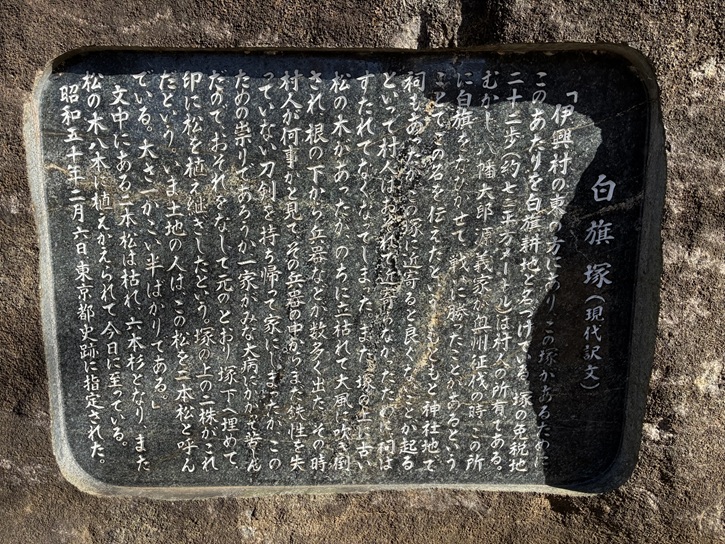 白旗塚(現代訳文)
「伊興村の東の方にあり、この塚があるために
このあたりを白旗耕地と名づけている。塚の免税地
二十二歩(約七三平方メートル)は村人の所有である。
むかし、八幡太郎源義家が奥州征伐の時、この所
に白旗をなびかせて、戦いに勝ったことがあるという
ことで、この名を伝えたという。もともと神社地で
祠もあったが、この塚に近寄ると良くないことが起る
といって村人はおそれて近寄らなかったために祠は
すたれてなくなってしまった。また、塚の上に古い
松の木があったが、のちに立枯れて大風に吹き倒
され、根の下から兵器などが数多く出た。その時
村人が何事かと見て、その兵器の中からまだ鉄性を失
っていない刀剣を持ち帰って家にしまったが、この
ための祟りであろうか一家がみな大病にかかって苦しん
だので、おそれをなして元のとおり塚下へ埋めて、
印に松を植え継ぎしたという。塚の上の二株がこれ
だという。いま土地の人は、この松を二本松と呼ん
でいる。大きさ一かこい半ばかりである。」
文中にある二本松は枯れ、六本杉となり、また
松の木八本に植えかえられて今日に至っている。
昭和五十年二月六日東京都史跡に指定された。